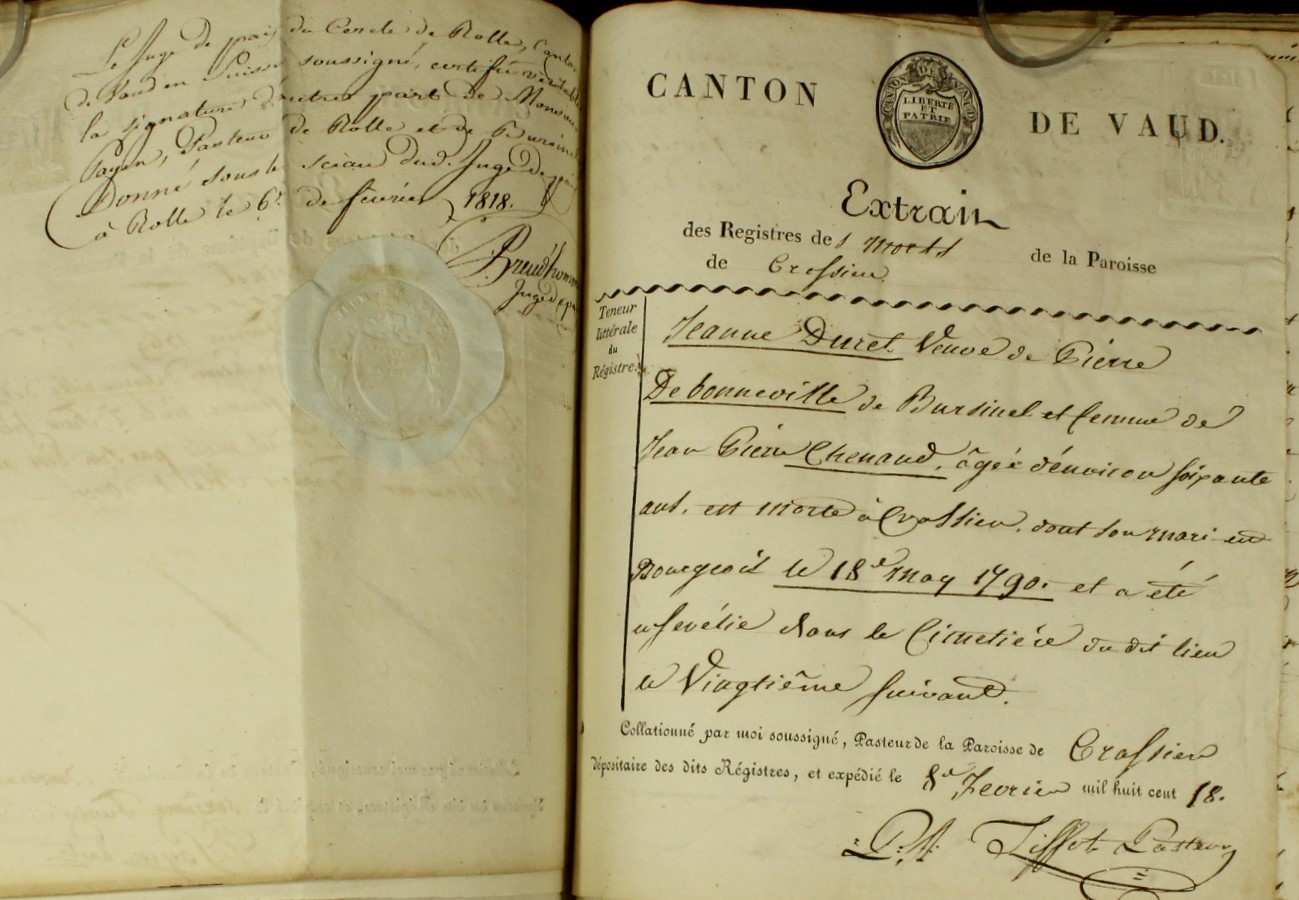 Le Juge de paix du Cercle de Rolle, Canton
de Vaud en Suisse soussigné, certifie véritable
la signature d'autre part de Monsieur
Payen, Pasteur de Rolle et de Bursinel
Donné sous le sceau dud. Juge de paix
à Rolle le 6e. de février 1818.
Preud'homme
Juge de paix
CANTON DE VAUD.
CANTON DE VAUD
LIBERTÉ
ET
PATRIE
Extrait
des Registres des morts de la Paroisse
de Crassier
Teneur
littérale
du
Régistre.
Jeanne Duret Veuve de Pierre
De bonneville de Bursinel et femme de
Jean Pierre Chenaud, âgée d'environ soixante
ans, est morte à Crassier, dont son mari est
Bourgeois le 18e may 1790. et a été
ensevelie dans le Cimetière du dit lieu
le Vingtième suivant.
Collationné par moi soussigné, Pasteur de la Paroisse de Crassier
dépositaire des dits Régistres, et expédié le 8e fevrier mil huit cent 18.
Tissot Pasteur